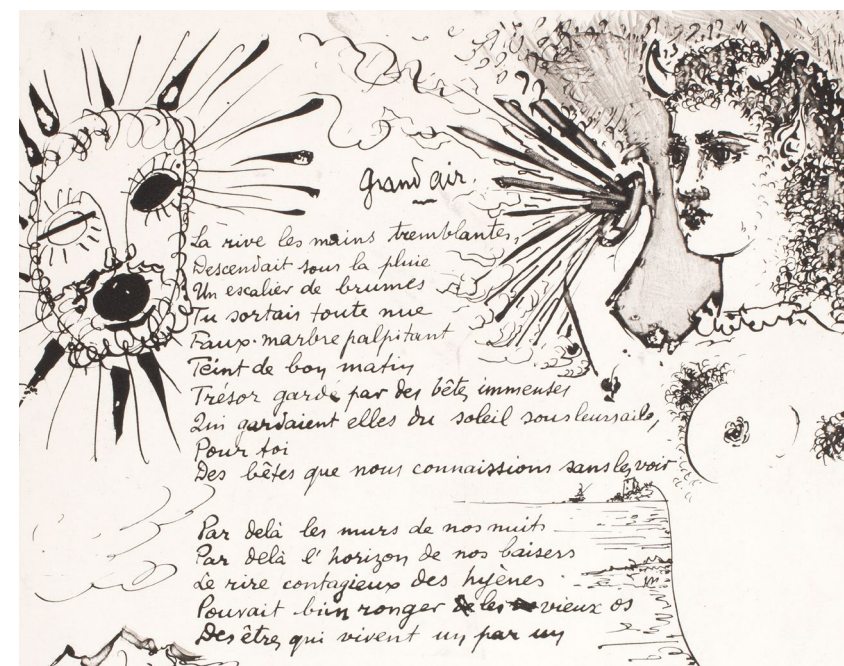 grand air.
La rive les mains tremblantes,
Descendait sous la pluie
Un escalier de brumes
Tu sortais toute nue
Faux marbre palpitant
Teint de bon matin
Trésor gardé par des bêtes immenses
Qui gardaient elles du soleil sous leurs ailes,
Pour toi
Des bêtes que nous connaissions sans les voir
Par delà les murs de nos nuits
Par delà l'horizon de nos baisers
Le rire contagieux des hyènes
Pouvait bien ronger les vieux os
Des êtres qui vivent un par un